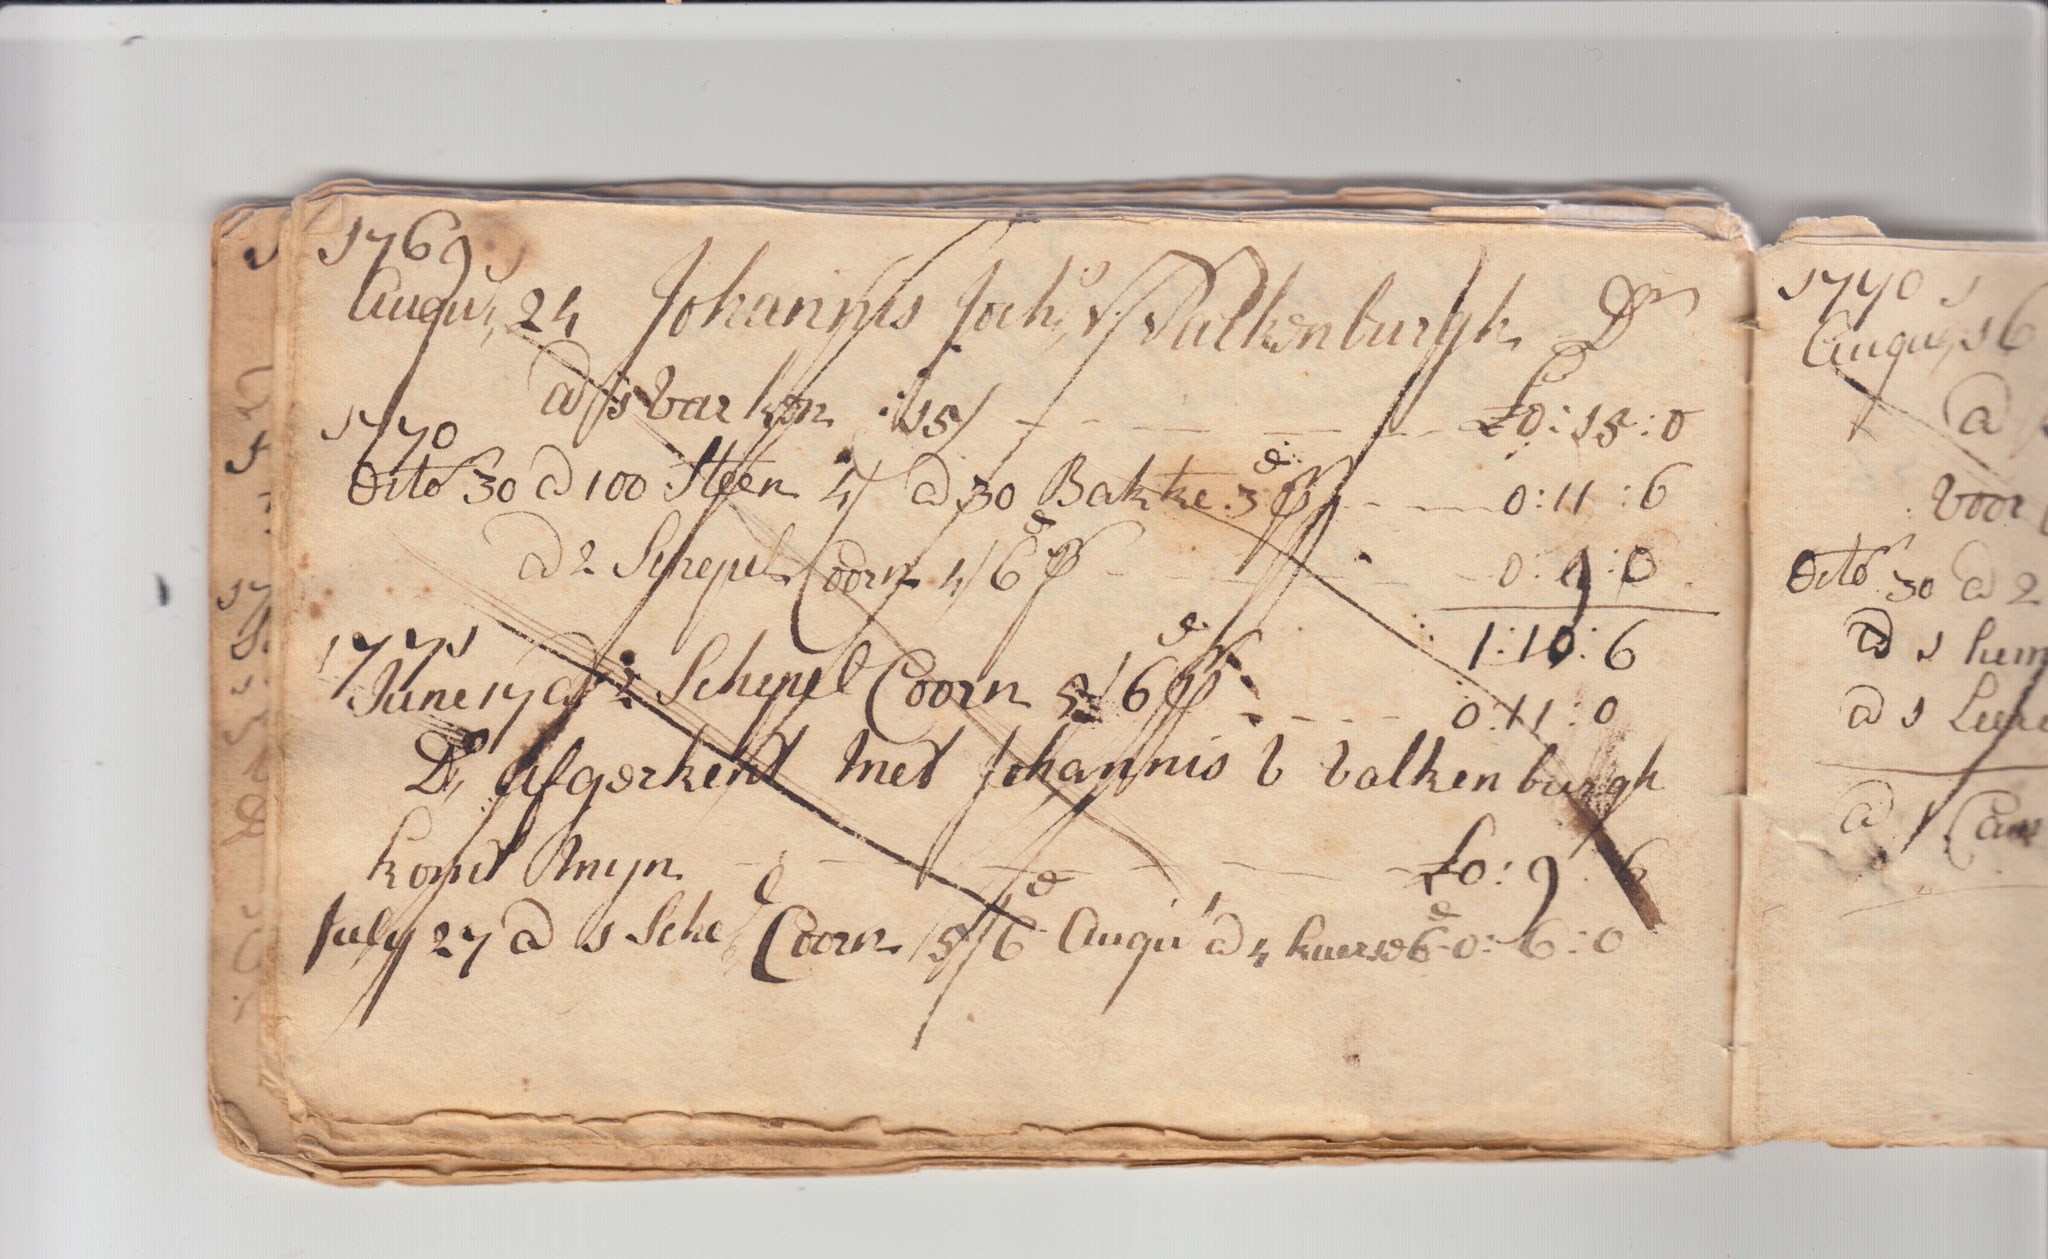 1769
Augus 24 Johannis Joch: v: Valkenburgh Dr
@ 1 varken 15/ £0:15:0
1770
Octo 30 @ 100 Steen 4/ @ 30 Bakke 3d p 0:11:6
@ 2 Schepel Coorn 4/6d p 0:9:0
1:10:6
1771
June 17 @ 2 Schepel Coorn 5/6d p 0:11:0
Do Afgerkent met Johannis v valkenburgh
komt mijn £0:9:6
July 27 @ 1 Sche Coorn 5/6d Augu @ 4 6d 0:6:0
1770
Augus 16
@
voor
Octo 30 @ 2
@ 1 hem
@ 1
@ 1